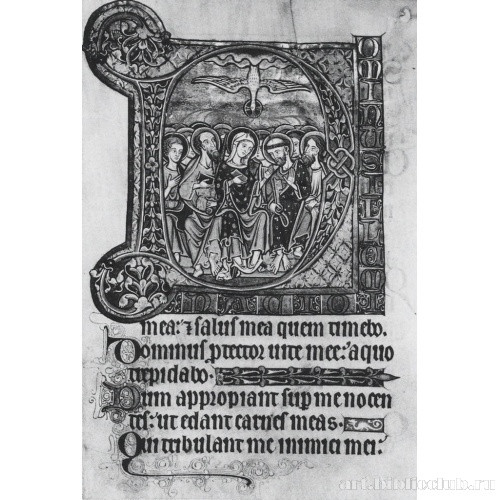 D
OMINUS ILLUM
INACIO
mea: ⁊ salus mea quem timebo.
Dominus ptector uite mee: a quo
trepidabo.
Dum appropiant sup me nocen
tes: ut edant carnes meas.
Qui tribulant me inimici mei:
art.biblioclub.ru